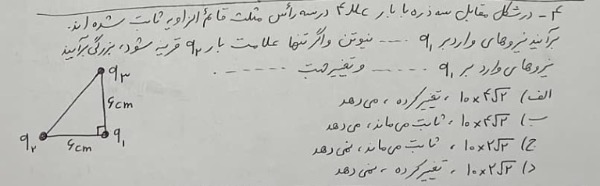 ۴- در شکل مقابل سه ذره با بار ۴μc در سه رأس مثلث قائم الزاویه ثابت شده اند.
برآیند نیروهای وارد بر q₁ ..... نیوتن و اگر تنها علامت بار q₂ قرینه شود، بزرگی برآیند
نیروهای وارد بر q₁ ....... و تغییر جهت .......
الف) ۱۰×۴√۲ ، تغییر کرده ، می دهد
ب) ۱۰×۴√۲ ، ثابت می ماند، می دهد
ج) ۱۰×۲√۲ ، ثابت می ماند، نمی دهد
د) ۱۰×۲√۲ ، تغییر کرده ، نمی دهد
q₃
۶cm
q₂
۶cm
q₁